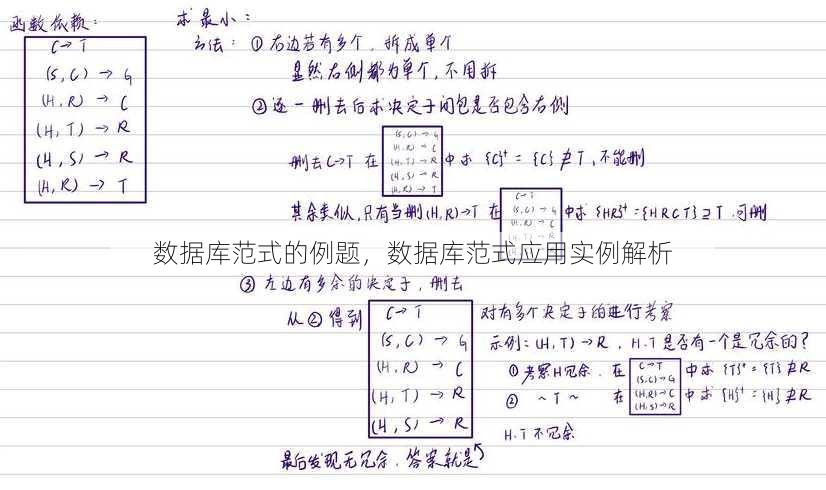 函数依赖:
C→T
(S,C)→G
(H,R)→C
(H,T)→R
(H,S)→R
(H,R)→T
求最小:
方法:①右边若有多个,拆成单个
显然右侧都为单个,不用拆
②逐一删去后求决定子闭包是否包含右侧
删去C→T 在
(S,C)→G
(H,R)→C
(H,T)→R
(H,S)→R
(H,R)→T
中求 {C}⁺={C}⊉T,不能删
其余类似,只有当删(H,R)→T 在
C→T
(S,C)→G
(H,R)→C
中求{HR}⁺={HRCT}⊇T.可删
数据库范式的例题,数据库范式应用实例解析
③左边有多余的决定子,删去
从②得到
C→T
(S,C)→G
(H,R)→C
(H,T)→R
(H,S)→R
对有多个决定子的进行考察
示例:(H,T)→R,H.T是否有一个是冗余的?
①考察H冗余.在
C→T
(S,C)→G
(H,R)→C
(H,S)→R
中求{T}⁺={T}⊉R
② ~T~ 在
中求{H}⁺={H}⊉R
H.T不冗余
最后发现无冗余.答案就是